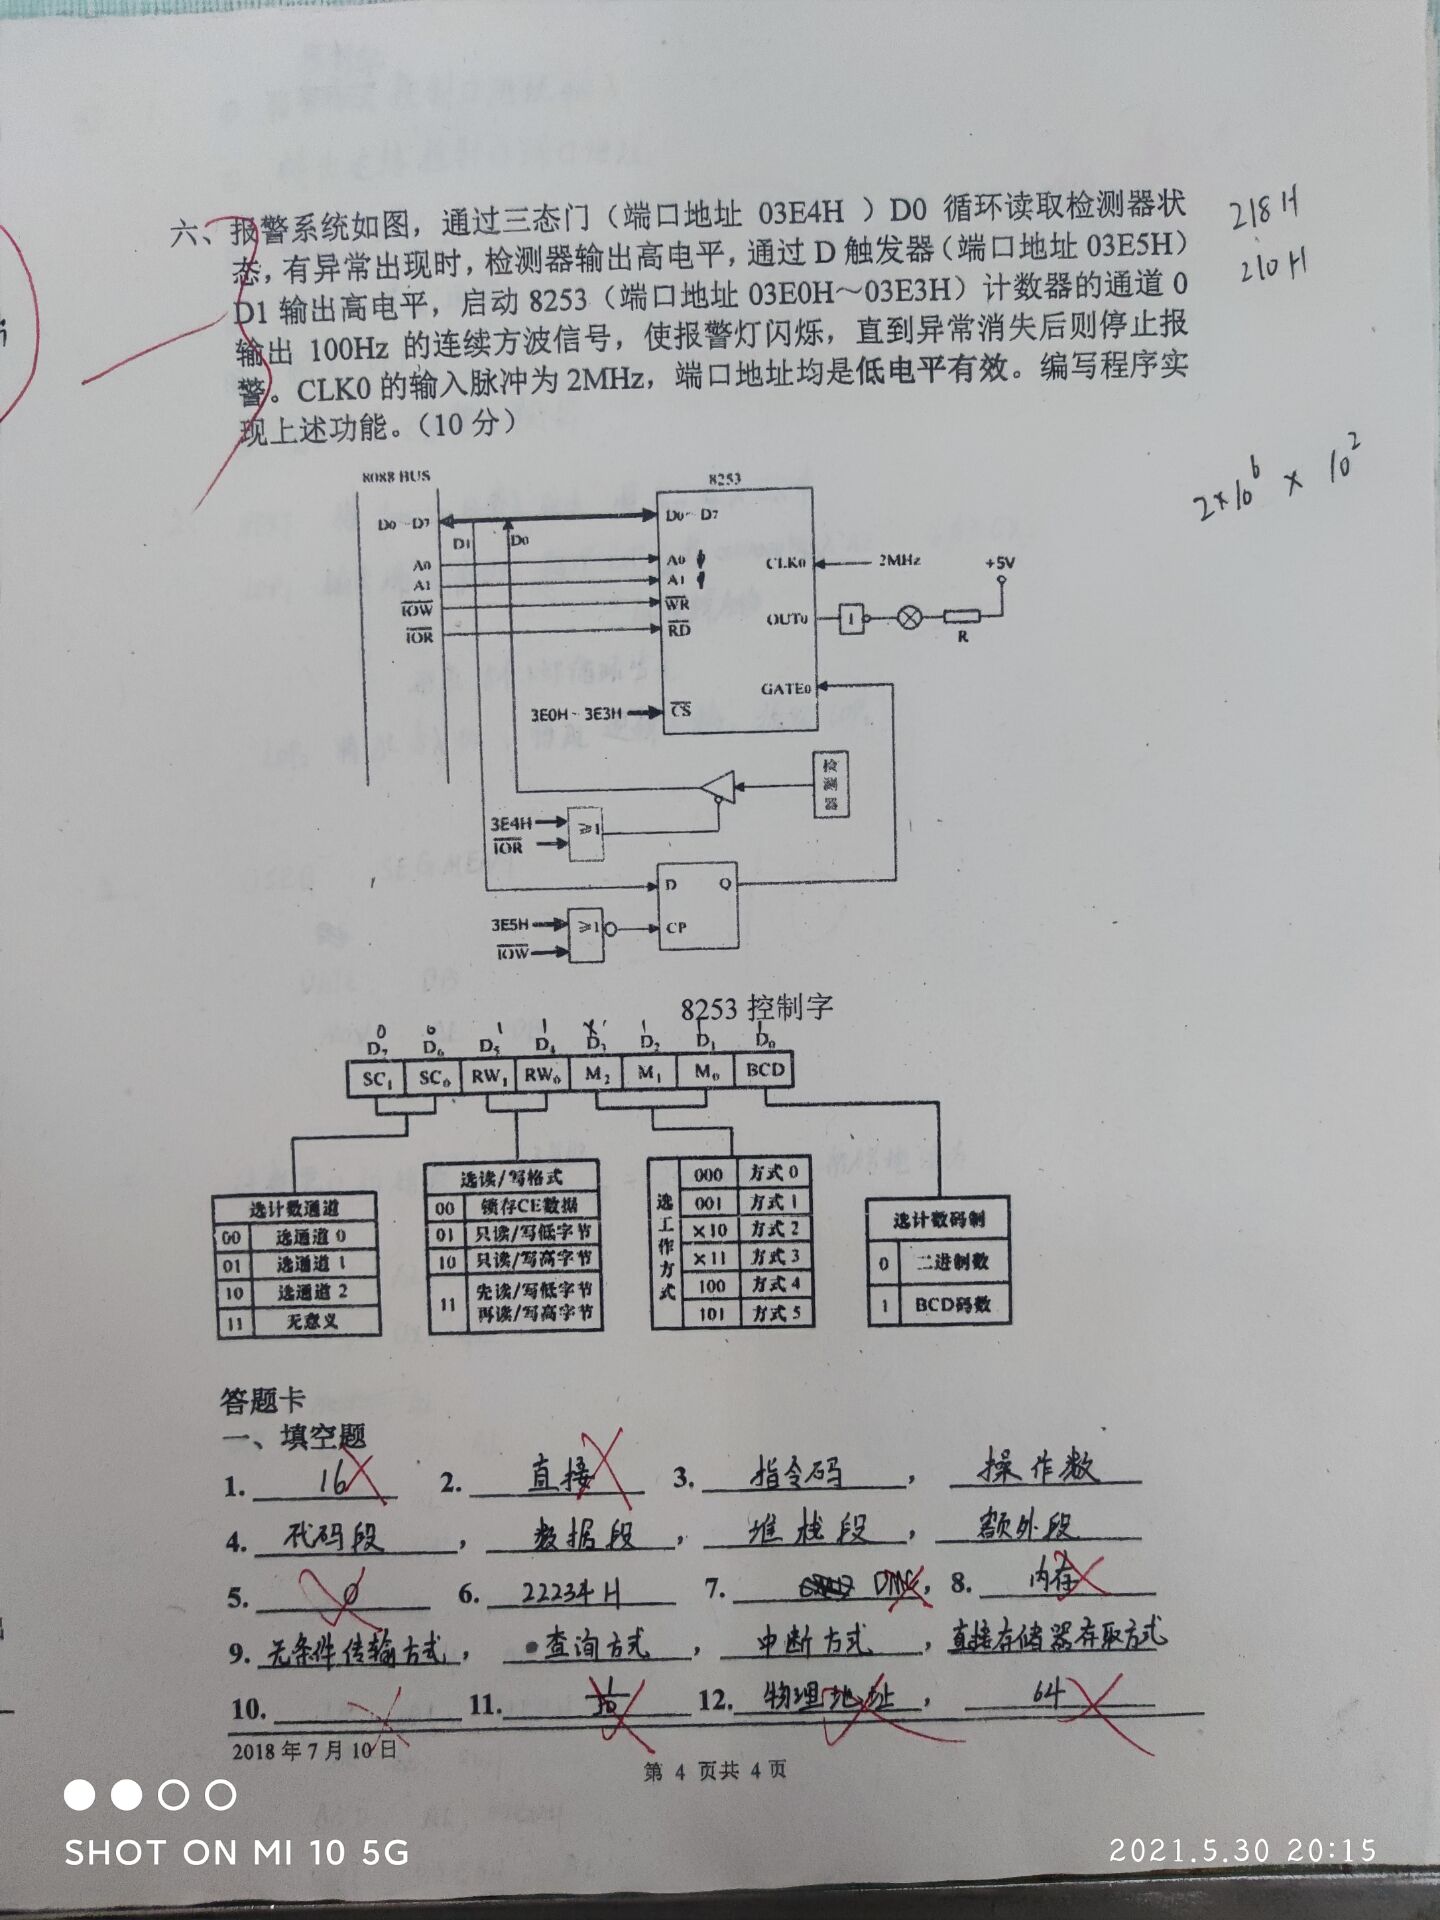 六、报警系统如图，通过三态门（端口地址 03E4H ）D0 循环读取检测器状
态，有异常出现时，检测器输出高电平，通过 D 触发器（端口地址 03E5H）
D1 输出高电平，启动 8253（端口地址 03E0H～03E3H）计数器的通道 0
输出 100Hz 的连续方波信号，使报警灯闪烁，直到异常消失后则停止报
警。CLK0 的输入脉冲为 2MHz，端口地址均是低电平有效。编写程序实
现上述功能。（10 分）
218H
210H
2×10^6 × 10^2
8088 BUS
8253
D0~D7
D1
D0
D0~D7
A0
A0
CLK0
2MHz
+5V
A1
A1
IOW
WR
OUT0
1
R
IOR
RD
GATE0
3E0H~3E3H
CS
检测器
3E4H
IOR
≥1
D
Q
3E5H
IOW
≥1
CP
8253 控制字
0 0 1 1 × 1 1 1
D7 D6 D5 D4 D3 D2 D1 D0
SC1 SC0 RW1 RW0 M2 M1 M0 BCD
选计数通道
00 选通道 0
01 选通道 1
10 选通道 2
11 无意义
选读/写格式
00 锁存CE数据
01 只读/写低字节
10 只读/写高字节
11 先读/写低字节
再读/写高字节
选工作方式
000 方式 0
001 方式 1
×10 方式 2
×11 方式 3
100 方式 4
101 方式 5
选计数码制
0 二进制数
1 BCD码数
答题卡
一、填空题
1. 16 2. 直接 3. 指令码 ， 操作数
4. 代码段 ， 数据段 ， 堆栈段 ， 额外段
5. 0 6. 22234H 7. DMC 8. 内存
9. 无条件传输方式 ， 查询方式 ， 中断方式 ，直接存储器存取方式
10. 11. 12. 物理地址 ， 64
2018 年 7 月 10 日
第 4 页共 4 页
SHOT ON MI 10 5G
2021.5.30 20:15